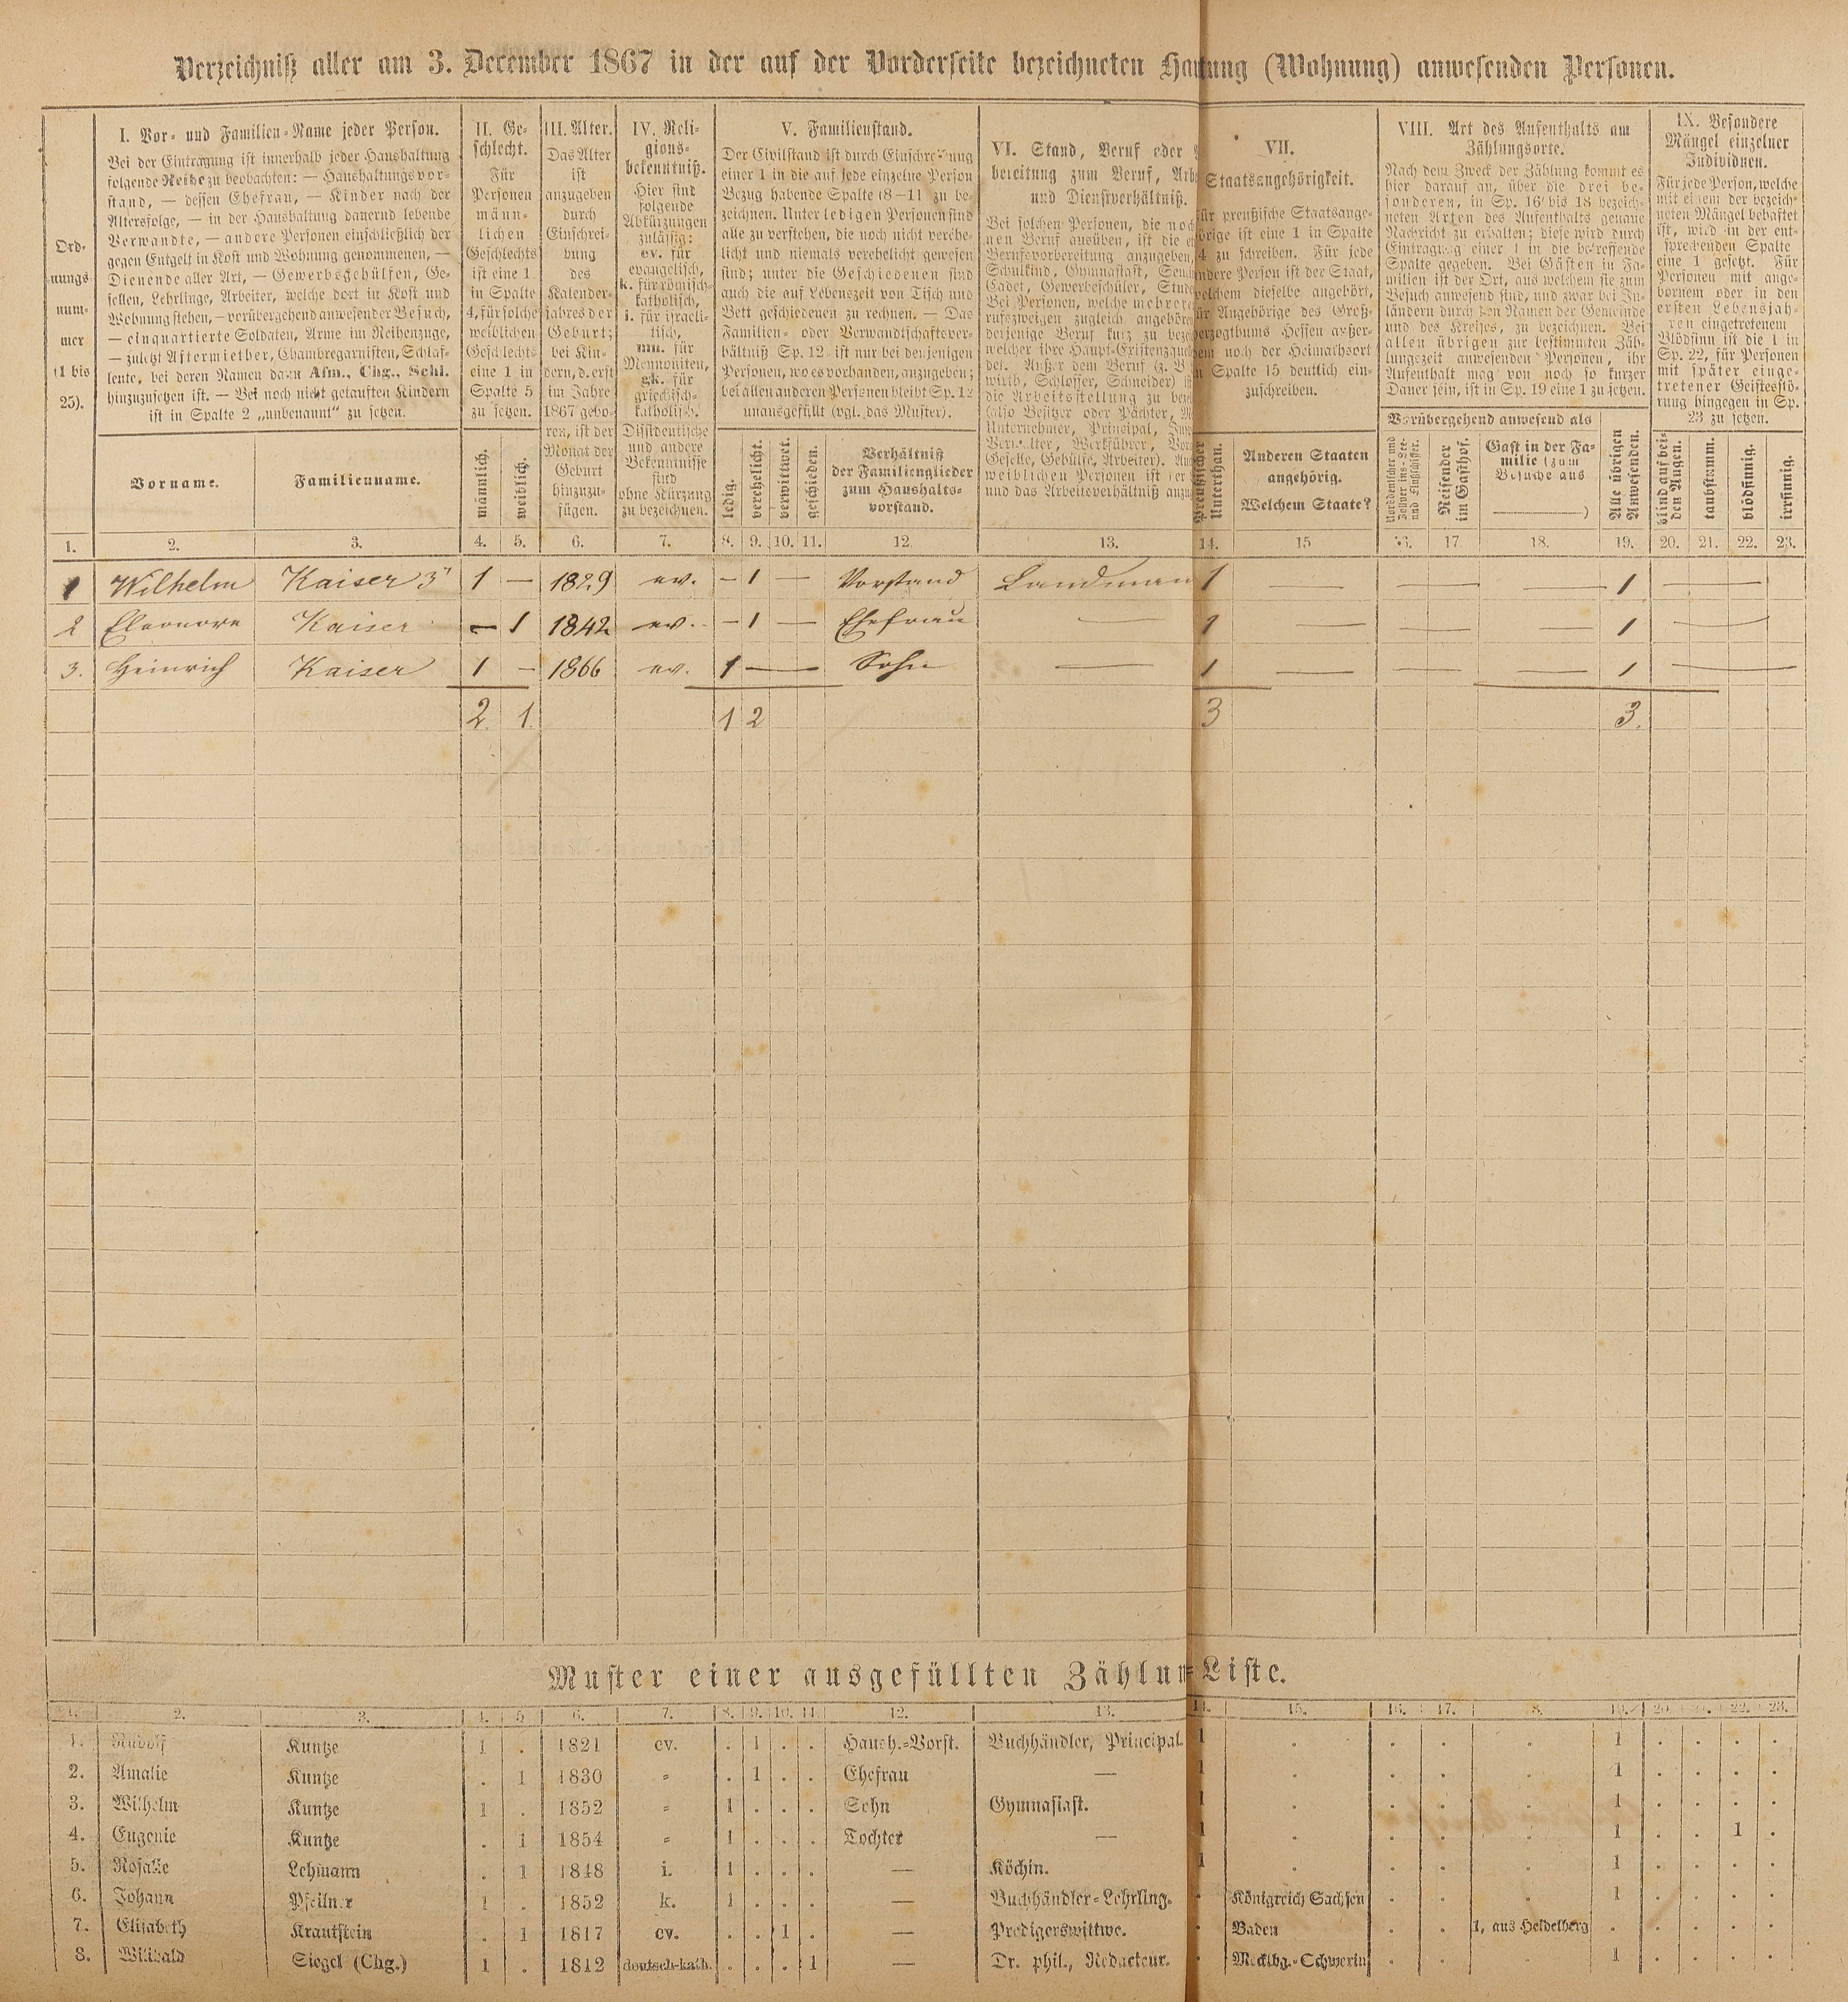 Verzeichniß aller am 3. December 1867 in der auf der Vorderseite bezeichneten Hausung (Wohnung) anwesenden Personen.
Ord-
nungs
num-
mer
(1 bis
25).
I. Vor- und Familien-Name jeder Person.
Bei der Eintragung ist innerhalb jeder Haushaltung
folgende Reihe zu beobachten: — Haushaltungsvor-
stand, — dessen Ehefrau, — Kinder nach der
Altersfolge, — in der Haushaltung dauernd lebende
Verwandte, — andere Personen einschließlich der
gegen Entgelt in Kost und Wohnung genommenen, —
Dienende aller Art, — Gewerbsgehülfen, Ge-
sellen, Lehrlinge, Arbeiter, welche dort in Kost und
Wohnung stehen, — vorübergehend anwesender Besuch,
— einquartierte Soldaten, Arme im Reihenzuge,
— zuletzt Aftermiether, Chambregarnisten, Schlaf-
leute, bei deren Namen dann Afm., Chg., Schl.
hinzuzusetzen ist. — Bei noch nicht getauften Kindern
ist in Spalte 2 „unbenannt“ zu setzen.
Vorname.
Familienname.
II. Ge-
schlecht.
Für
Personen
männ-
lichen
Geschlechts
ist eine 1
in Spalte
4, für solche
weiblichen
Geschlechts
eine 1 in
Spalte 5
zu setzen.
männlich.
weiblich.
III. Alter.
Das Alter
ist
anzugeben
durch
Einschrei-
bung
des
Kalender-
jahres der
Geburt;
bei Kin-
dern, d. erst
im Jahre
1867 gebo-
ren, ist der
Monat der
Geburt
hinzuzu-
fügen.
IV. Reli-
gions-
bekenntniß.
Hier sind
folgende
Abkürzungen
zulässig:
ev. für
evangelisch,
k. für römisch-
katholisch,
i. für israeli-
tisch,
mn. für
Mennoniten,
gk. für
griechisch-
katholisch.
Dissidentische
und andere
Bekenntnisse
sind
ohne Kürzung
zu bezeichnen.
V. Familienstand.
Der Civilstand ist durch Einschreibung
einer 1 in die auf jede einzelne Person
Bezug habende Spalte (8—11 zu be-
zeichnen. Unter ledigen Personen sind
alle zu verstehen, die noch nicht verehe-
licht und niemals verehelicht gewesen
sind; unter die Geschiedenen sind
auch die auf Lebenszeit von Tisch und
Bett geschiedenen zu rechnen. — Das
Familien- oder Verwandtschaftsver-
hältniß Sp. 12 ist nur bei denjenigen
Personen, wo es vorhanden, anzugeben;
bei allen anderen Personen bleibt Sp. 12
unausgefüllt (vgl. das Muster).
ledig.
verehelicht.
verwittwet.
geschieden.
Verhältniß
der Familienglieder
zum Haushalts-
vorstand.
VI. Stand, Beruf oder
bereitung zum Beruf, Arb
und Dienstverhältniß.
Bei solchen Personen, die noch
nen Beruf ausüben, ist die
Berufsvorbereitung anzugeben,
Schulkind, Gymnasiast, Semin
Cadet, Gewerbeschüler, Stude
Bei Personen, welche mehrere
rufszweigen zugleich angehöre
derjenige Beruf kurz zu beze
welcher ihre Haupt-Existenzque
det. Außer dem Beruf (z. B.
wirth, Schlosser, Schneider) i
die Arbeitsstellung zu beze
(also Besitzer oder Pächter, M
Unternehmer, Principal,
Verwalter, Werkführer,
Geselle, Gehülfe, Arbeiter).
weiblichen Personen ist der
und das Arbeitsverhältniß anzu
VII.
Staatsangehörigkeit.
für preußische Staatsange-
hörige ist eine 1 in Spalte
14 zu schreiben. Für jede
andere Person ist der Staat,
welchem dieselbe angehört,
für Angehörige des Groß-
herzogthums Hessen außer-
dem noch der Heimathsort
in Spalte 15 deutlich ein-
zuschreiben.
Preußischer
Unterthan.
Anderen Staaten
angehörig.
Welchem Staate?
VIII. Art des Aufenthalts am
Zählungsorte.
Nach dem Zweck der Zählung kommt es
hier darauf an, über die drei be-
sonderen, in Sp. 16 bis 18 bezeich-
neten Arten des Aufenthalts genaue
Nachricht zu erhalten; diese wird durch
Eintragung einer 1 in die betreffende
Spalte gegeben. Bei Gästen in Fa-
milien ist der Ort, aus welchem sie zum
Besuch anwesend sind, und zwar bei In-
ländern durch den Namen der Gemeinde
und des Kreises, zu bezeichnen. Bei
allen übrigen zur bestimmten Zäh-
lungszeit anwesenden Personen, ihr
Aufenthalt mag von noch so kurzer
Dauer sein, ist in Sp. 19 eine 1 zu setzen.
Vorübergehend anwesend als
Norddeutscher und
Zollvereins-See-
und Flußschiffer.
Reisender
im Gasthof.
Gast in der Fa-
milie (zum
Besuche aus
)
Alle übrigen
Anwesenden.
IX. Besondere
Mängel einzelner
Individuen.
Für jede Person, welche
mit einem der bezeich-
neten Mängel behaftet
ist, wird in der ent-
sprechenden Spalte
eine 1 gesetzt. Für
Personen mit ange-
bornem oder in den
ersten Lebensjah-
ren eingetretenem
Blödsinn ist die 1 in
Sp. 22, für Personen
mit später einge-
tretener Geistesstö-
rung hingegen in Sp.
23 zu setzen.
blind auf bei-
den Augen.
taubstumm.
blödsinnig.
irrsinnig.
1. 2. 3. 4. 5. 6. 7. 8. 9. 10. 11. 12. 13. 14. 15 16. 17. 18. 19. 20. 21. 22. 23.
1 Wilhelm Kaiser 3" 1 — 1829 ev. — 1 — Vorstand Landmann 1 — — 1 —
2 Eleonore Kaiser — 1 1842 ev. — 1 — Ehefrau — 1 — — — 1 —
3. Heinrich Kaiser 1 — 1866 ev. 1 — Sohn — 1 — — — 1 —
2 1 1 2 3 3.
Muster einer ausgefüllten Zählun Liste.
2. 3. 4. 5 6. 7. 8. 9. 10. 11. 12. 13. 14. 15. 16. 17. 8. 19. 20. 21. 22. 23.
1. Rudolf Kuntze 1 . 1821 ev. . 1 . . Haush.-Vorst. Buchhändler, Principal. 1 . . . . 1 . . . .
2. Amalie Kuntze . 1 1830 = . 1 . . Ehefrau — 1 . . . . 1 . . . .
3. Wilhelm Kuntze 1 . 1852 = 1 . . . Sohn Gymnasiast. 1 . . . . 1 . . . .
4. Eugenie Kuntze . 1 1854 = 1 . . . Tochter — 1 . . . . 1 . . 1 .
5. Rosalie Lehmann . 1 1848 i. 1 . . . — Köchin. 1 . . . . 1 . . . .
6. Johann Pfeilner 1 . 1852 k. 1 . . . — Buchhändler-Lehrling. . Königreich Sachsen . . . 1 . . . .
7. Elisabeth Krautstein . 1 1817 ev. . . 1 . — Predigerswittwe. . Baden . . 1, aus Heidelberg . . . . .
8. Willibald Siegel (Chg.) 1 . 1812 deutsch-kath. . . . 1 — Dr. phil., Redacteur. . Mecklbg.-Schwerin . . . 1 . . . .